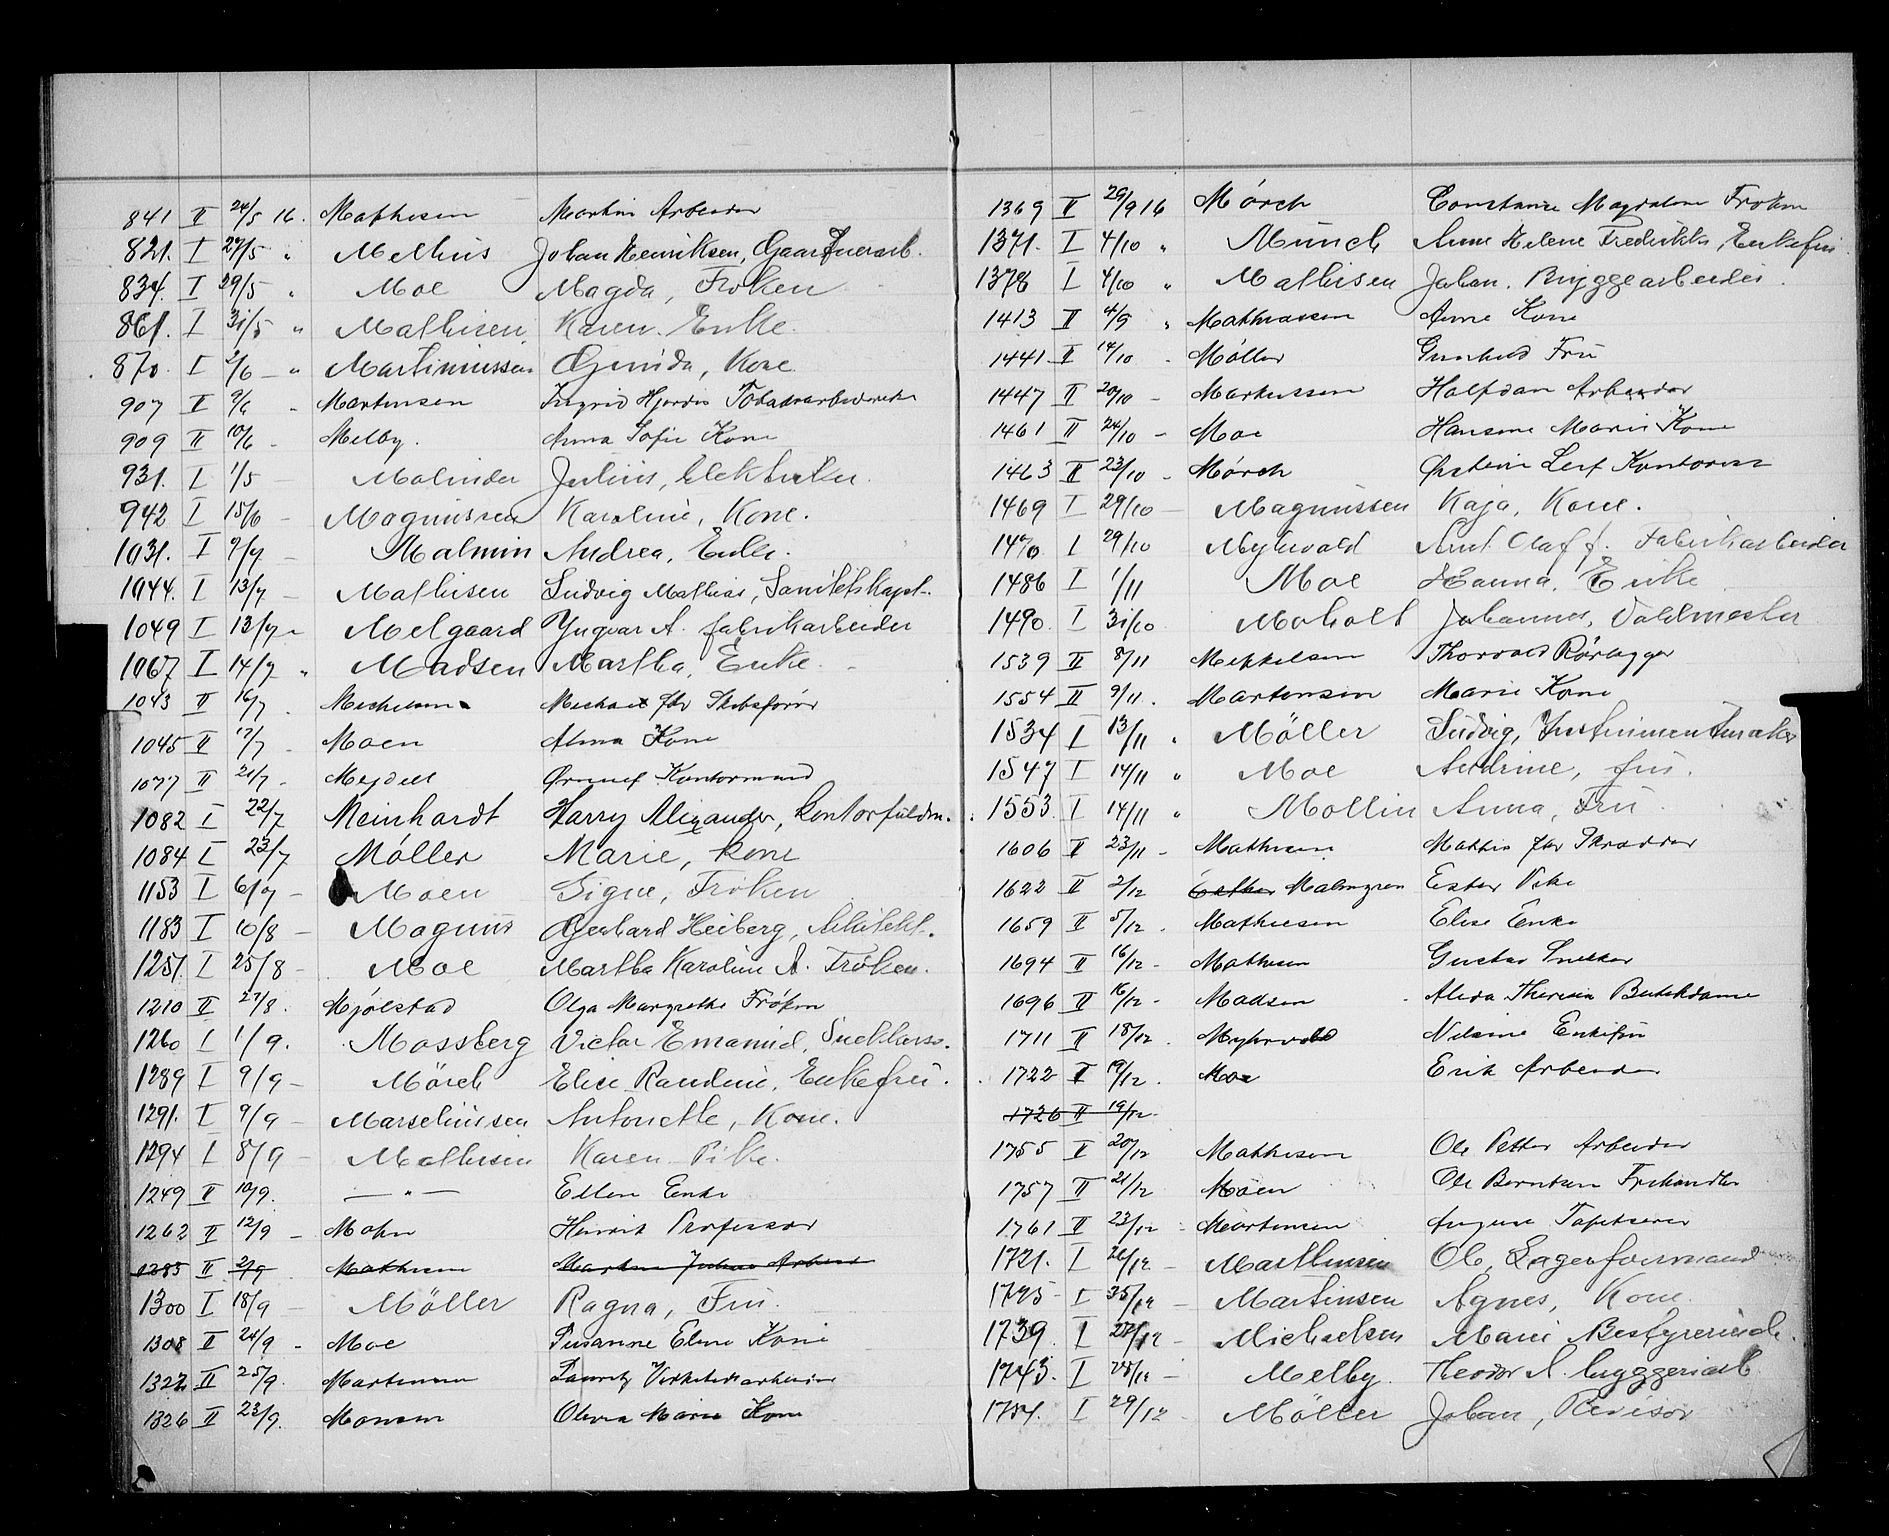 841 II 24/5 16. Mathisen Martin Arbeider
821. I 27/5 " Melhus Johan Henriksen, Gaard
834. I 29/5 " Moe Magda, Frøken
861. I 31/5 " Mathisen, Karen. Enke.
870. I 2/6 - " Martiniussen Gunda, Kone
907 II 9/6 " Martensen Ingrid Hjørdis
909 II 10/6 - Melby. Anna Sofie Kone
931. I 1/5 - Malinder Julius, Elektriker.
942 I 15/6 - Magnussen Karoline, Kone.
1031. I 9/7 - Malmin Andrea, Enke.
1044. I 13/7 - Mathisen Ludvig Mathias, Sanitetskapt.
1049 I 13/7 " Melgaard Yngvar A. fabrikarbeider
1067 I 14/7 " Madsen Martha, Enke. -
1043 II 16/7 . Michelsen Michael fhv Skibsfører
1045 II 17/7 - Moen Alma Kone
1077 II 21/7 - Mejdell Kontormand
1082 I 22/7 Meinhardt Harry Alexander, kontorfuldm.
1084 I 23/7 Møller Marie, kone
1153 I 6/7 - Moen Signe, Frøken
1183 I 10/8 - Magnus Gerhard Heiberg, Arkitekt.
1251. I 25/8 - Moe Martha Karoline A. Frøken.
1210 II 27/8. Mjølstad Olga Margrethe Frøken
1260 I 1/9. Mossberg Victor Emanuel,
1289 I 9/9 - Mörch Elise Randine, Enkefru.
1291. I 9/9 - Marseliussen Antonette, Kone.
1294 I 8/9 - Mathisen Karen Pike.
1249 II 10/9. - " - Ellen Enke
1262 II 12/9 - Mohn Henrik Professor
1285 II 2/9 Mathisen Martin Johan Arbeid
1300 I 18/9 - Möller Ragna, Fru.
1308 II 24/9 - Moe Susanne Elene Kone
1322 II 25/9. Martinsen Lauritz
1326 II 23/9. Monsen Olivia Marie Kone
1369 II 29/9 16 Mörch Constance Magdalene Frøken
1371. I 4/10 " Münch Anne Helene Fredrikke, Enkefru
1378 I 4/10 " Mathisen Johan. Bryggearbeider.
1413 II 4/9 " Mathiassen Anne Kone
1441 II 14/10 - Møller Gunhild Fru
1447 II 20/10 - Markussen Halfdan Arbeider
1461 II 24/10 - Moe Hansine Marie Kone
1463 II 23/10 - Mörch Østein Leif Kontorist
1469 I 29/10 - Magnussen Kaja, Kone.
1470. I 29/10 Myhrvold Arnt Olaf f. Fabrikarbeider
1486 I 1/11 Moe Hanna, Enke
1490. I 31/10 Moholt Johannes, Valdmester
1539 II 8/11 Mikkelsen Thorvald Rörlegger
1554 II 9/11. Martensen Marie Kone
1534 I 13/11 " Möller Ludvig, Instrumentmaker
1547 I 14/11 " Moe Andrine, fru.
1553 I 14/11 " Mollin Anna, Fru
1606 II 23/11 - Mathisen Mathis fhv Skrædder
1622 II 2/12 Esther Malmgren Ester Pike
1659 II 5/12 . Mathiesen Elise Enke
1694 II 16/12 - Mathisen Gustav Snekker
1696 II 16/12 - Madsen - Alida Theresia Butikdame
1711 II 18/12 . Myhrvold Nilsine Enkefru
1722 I 19/12 . Moe Erik Arbeider
1726 II 19/12.
1755 II 20/12 Mathisen Ole Petter Arbeider
1757 II 21/12 Moen Ole Berntsen
1761 II 23/12 - Mortensen August Tapetserer
1721. I 26/12 - Marthinsen Ole, Lagerformand
1725 I 25/12 - Martinsen Agnes, Kone.
1739. I 27/12 - Michaelsen Marie Bestyrerinde.
1743. I 28/12 - Melby. Theodor A. bryggeriarb.
1751. I 29/12 Möller Johan, Revisor